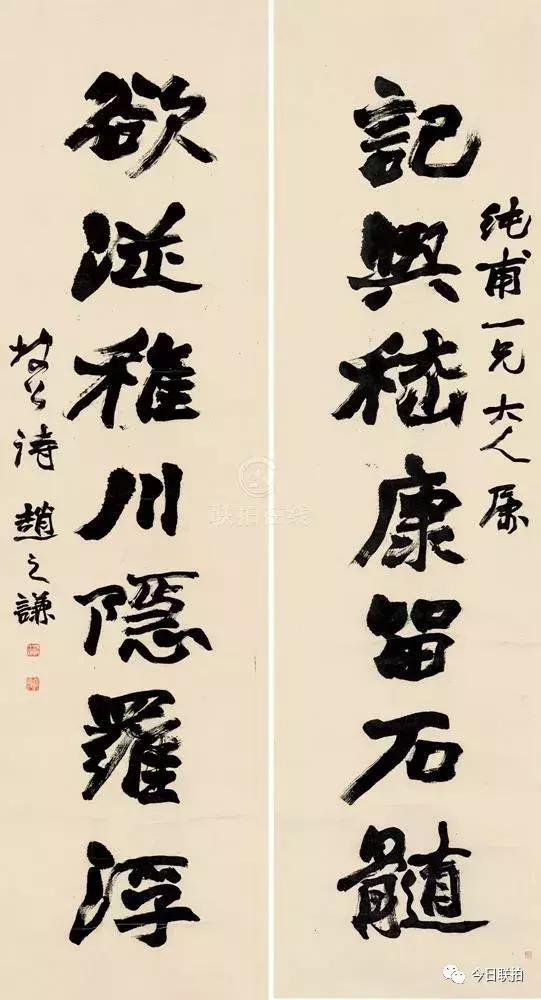 純甫一兄大人属
記與嵇康留石髓
欲從稚川隱羅浮
坡公詩 趙之謙
联拍在线
今日联拍